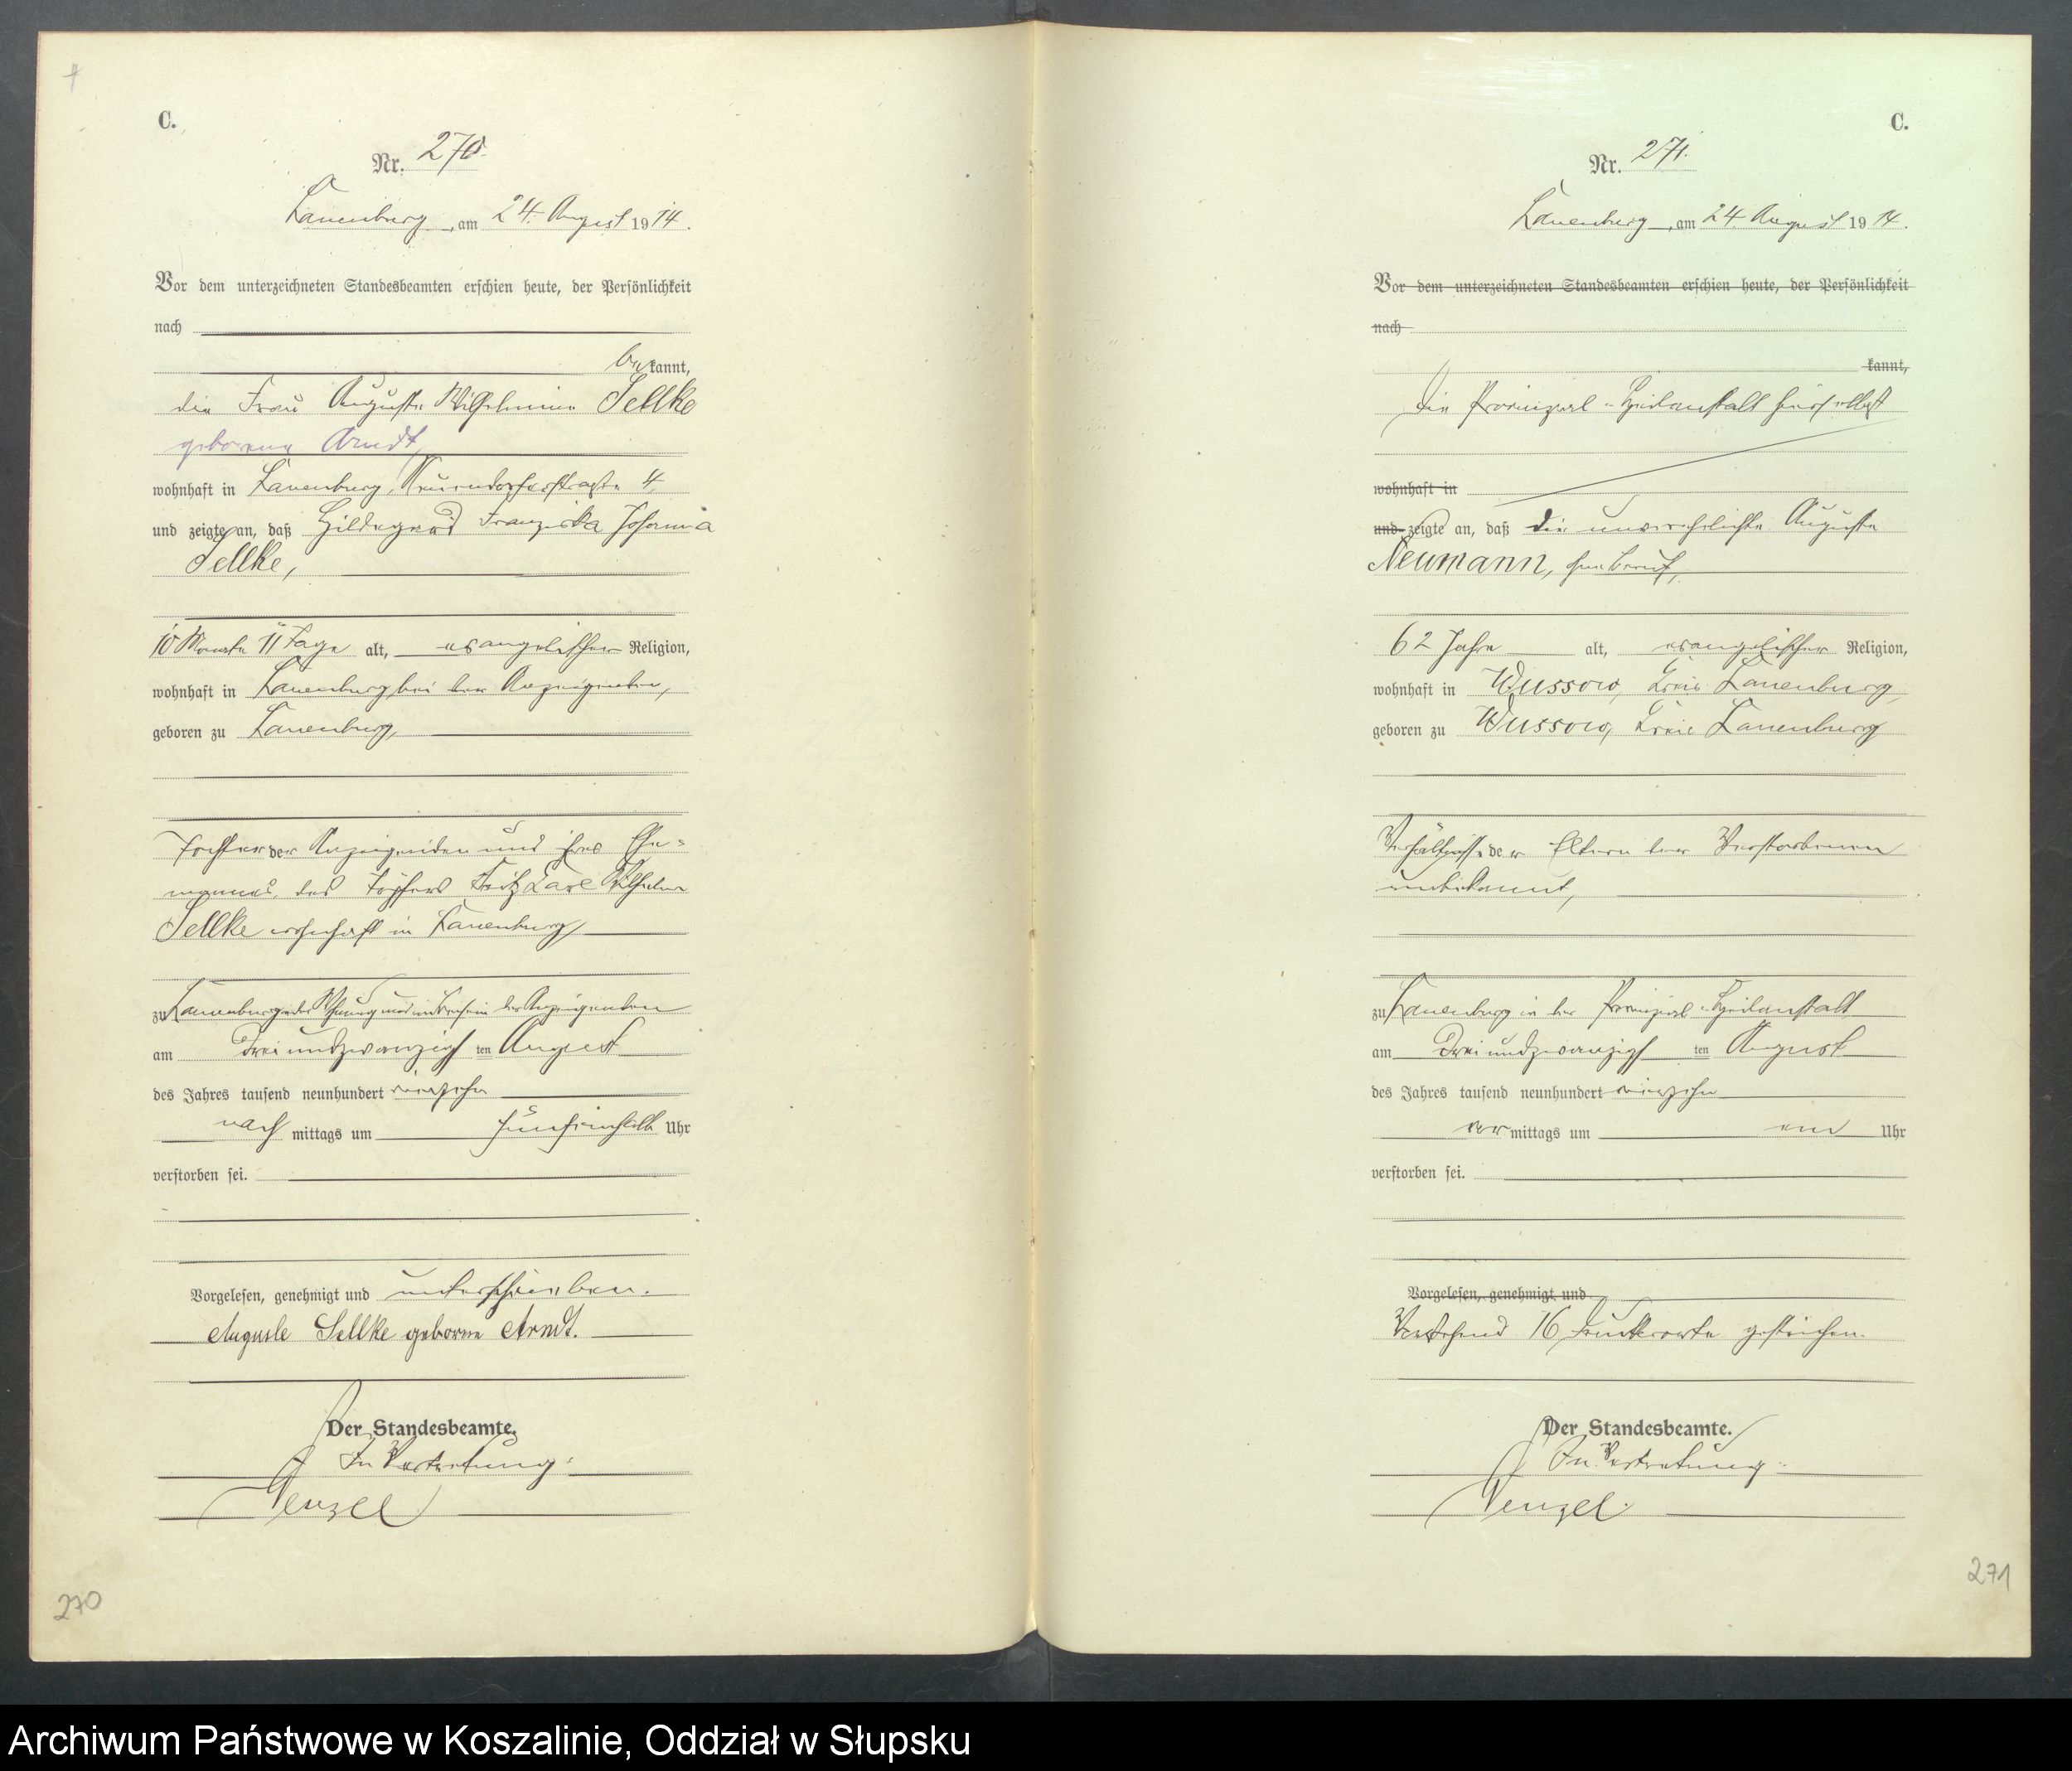 C.
Nr. 270.
Lauenburg, am 24. August 1914.
Vor dem unterzeichneten Standesbeamten erschien heute, der Persönlichkeit
nach
bekannt,
die Frau Auguste Wilhelmine Sellke
geborene Arndt,
wohnhaft in Lauenburg, Neuendorferstraße 4,
und zeigte an, daß Hildegard Franziska Johanna
Sellke,
10 Monate 11 Tage alt, evangelischer Religion,
wohnhaft in Lauenburg bei der Anzeigenden,
geboren zu Lauenburg,
Tochter der Anzeigenden und ihres Ehe-
mannes, des Töpfers Fritz Carl Wilhelm
Sellke wohnhaft in Lauenburg
zu Lauenburg in der Wohnung und im Beisein der Anzeigenden
am dreiundzwanzigsten August
des Jahres tausend neunhundert vierzehn
nachmittags um fünfeinhalb Uhr
verstorben sei.
Vorgelesen, genehmigt und unterschrieben.
Auguste Sellke geborene Arndt.
Der Standesbeamte.
In Vertretung:
Wenzel
270
C.
Nr. 271.
Lauenburg, am 24. August 1914.
Vor dem unterzeichneten Standesbeamten erschien heute, der Persönlichkeit
nach
kannt,
Die Provinzial-Heilanstalt hierselbst
wohnhaft in
und zeigte an, daß die unverehelichte Auguste
Neumann, ohne Beruf,
62 Jahre alt, evangelischer Religion,
wohnhaft in Wussow, Kreis Lauenburg,
geboren zu Wussow, Kreis Lauenburg
Verhältnisse der Eltern der Verstorbenen
unbekannt,
zu Lauenburg in der Provinzial-Heilanstalt
am dreiundzwanzigsten August
des Jahres tausend neunhundert vierzehn
vormittags um ein Uhr
verstorben sei.
Vorgelesen, genehmigt und
Vorstehend 16 Druckworte gestrichen.
Der Standesbeamte.
In Vertretung:
Wenzel.
271
Archiwum Państwowe w Koszalinie, Oddział w Słupsku